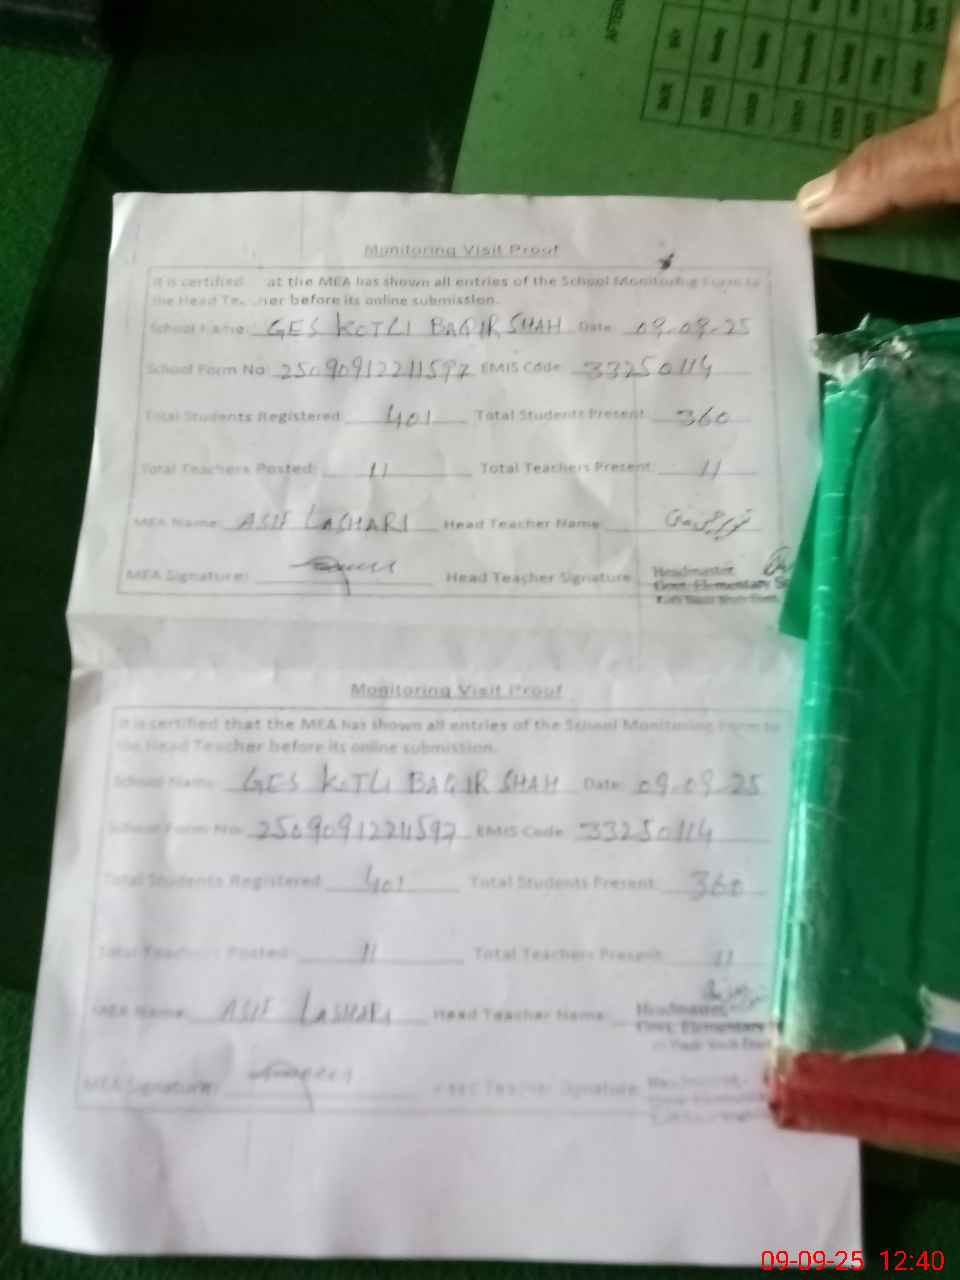 Monitoring Visit Proof
It is certified at the MEA has shown all entries of the School Monitoring Form to
the Head Teacher before its online submission.
School Name: GES KOTLI BAQIR SHAH Date: 09-09-25
School Form No: 25090912211597 EMIS Code: 33250114
Total Students Registered: 401 Total Students Present: 360
Total Teachers Posted: 11 Total Teachers Present: 11
MEA Name: ASIF LASHARI Head Teacher Name:
MEA Signature: Head Teacher Signature: Headmaster
Govt. Elementary
Monitoring Visit Proof
It is certified that the MEA has shown all entries of the School Monitoring Form to
the Head Teacher before its online submission.
School Name: GES KOTLI BAQIR SHAH Date: 09-09-25
School Form No: 25090912211597 EMIS Code: 33250114
Total Students Registered: 401 Total Students Present: 360
Total Teachers Posted: 11 Total Teachers Present: 11
MEA Name: ASIF LASHARI Head Teacher Name: Headmaster
Govt. Elementary
MEA Signature: Head Teacher Signature:
09-09-25 12:40